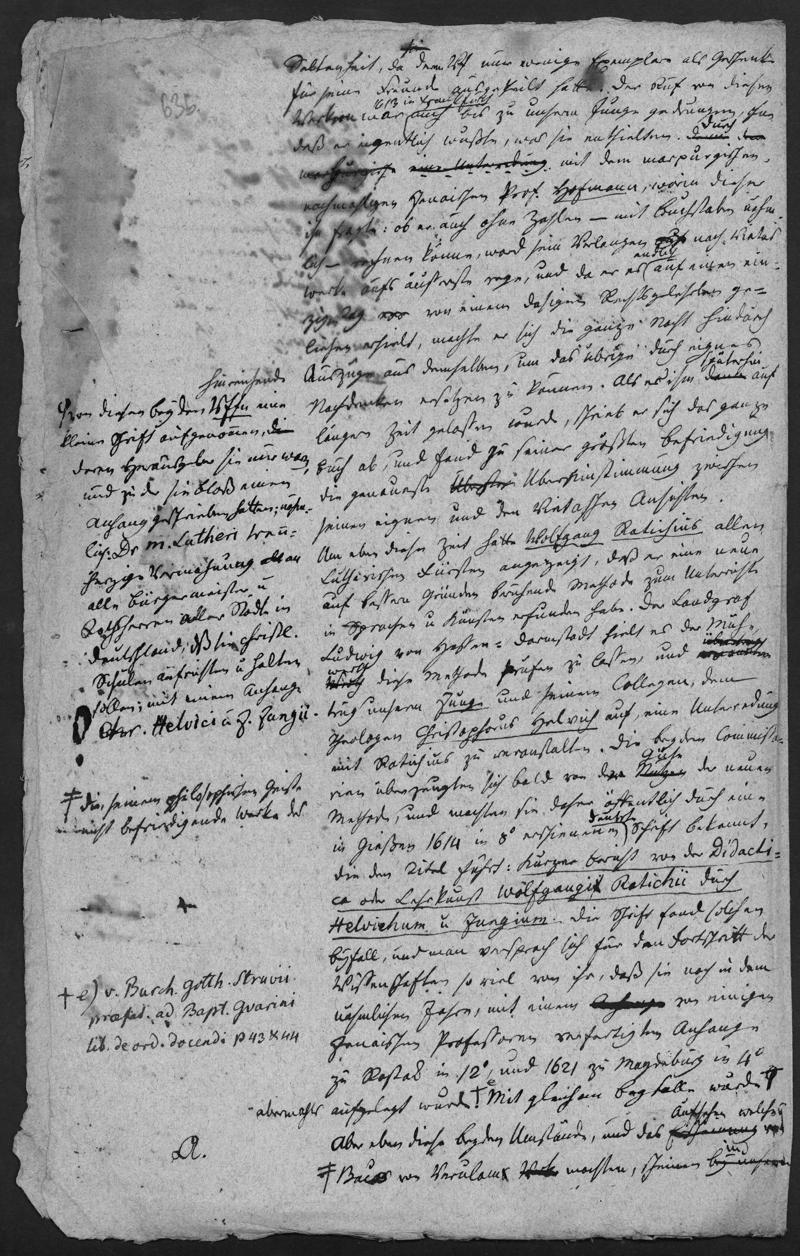 636.
Seltenheit, da der Vf nur wenige Exemplare als Geschenk
für seine Freunde ausgetheilt hatte. Der Ruf von diesen
Werken war 1613 in Frankfurth auch bis zu unserm Junge gedrungen, ohne
daß er eigentlich wußte, was sie enthielten. Durch
eine Unterredung mit dem marpurgischen,
nachmaligen Jenaischen Prof. Hofmann, worin dieser
ihn fragte: ob er auch ohne Zahlen — mit Buchstaben nehm-
lich — rechnen könne, ward sein Verlangen nach Vietas
Werke aufs äusserste rege, und da er es endlich auf einen ein-
zigen Tag von einem dasigen Rechtsgelehrten ge-
liehen erhielt, machte er sich die ganze Nacht hindurch
Auszüge aus demselben, um das übrige durch eignes
Nachdenken ersetzen zu können. Als es ihm späterhin auf
längere Zeit gelassen wurde, schrieb er sich das ganze
Buch ab, und fand zu seiner größten Befriedigung
die genaueste Übereinstimmung zwischen
seinen eignen und den Ansichten.
Um eben diese Zeit hatte Wolfgang Ratichius allen
Lutherischen Fürsten angezeigt, daß er eine neue
auf bessern Gründen beruhende Methode zum Unterricht
in Sprachen u Künsten erfunden habe. Der Landgraf
Ludwig von Hessen-Darmstadt hielt es der Mühe
werth diese Methode prüfen zu lassen, und
trug unserm Junge und seinem Collegen, dem
Theologen Christophorus Helvich auf, eine Unterredung
mit Ratichius zu veranstalten. Die beyden Commissa-
rien überzeugten sich bald von der Güte der neuen
Methode, und machten sie daher öffentlich durch eine
in Gießen 1614 in 8° erschienene deutsche Schrift bekannt,
die den Titel führt: Kurzer Bericht von der Didacti-
ca oder Lehrkunst Wolfgangi Ratichii durch
Helvichum u Jungium. Die Schrift fand solchen
Beyfall, und man versprach sich für den Fortschritt der
Wissenschaften so viel von ihr, daß sie noch in dem
nehmlichen Jahre, mit einem von einigen
Jenaischen Professoren verfertigten Anhange
zu Rostok in 12°, und 1621 zu Magdeburg in 4°
abermahls aufgelegt wurde. † e Mit gleichem Beyfalle wurde
Aber eben diese beyden Umstände, und das Aufsehen welches
‡ Baco von Verulam machten, scheinen
hinreichende
von diesen beyden Vffn eine
kleine Schrift aufgenommen,
deren Herausgeber sie nur waren,
und zu der sie bloß einen
Anhang geschrieben hatten; nehm-
lich: Dr. M. Lutheri treu-
herzige Vermahnung an
alle Bürgermeister u
Rathsherren aller Städte in
Deutschland, daß sie christl.
Schulen aufrichten u halten
sollen; mit einem Anhang
Chr. Helvici u J. Jungii.
‡ Die seinem philosophischen Geiste
nicht befriedigende Werke des
† e) v. Burch. Gotth. Struvii
præfat. ad Bapt. Guarini
lib. de ord. docendi p 43 & 44